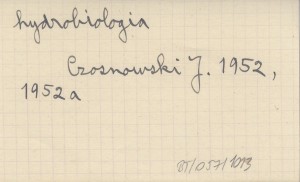 hydrobiologia
Czosnowski J. 1952,
1952a
BT/057/1013